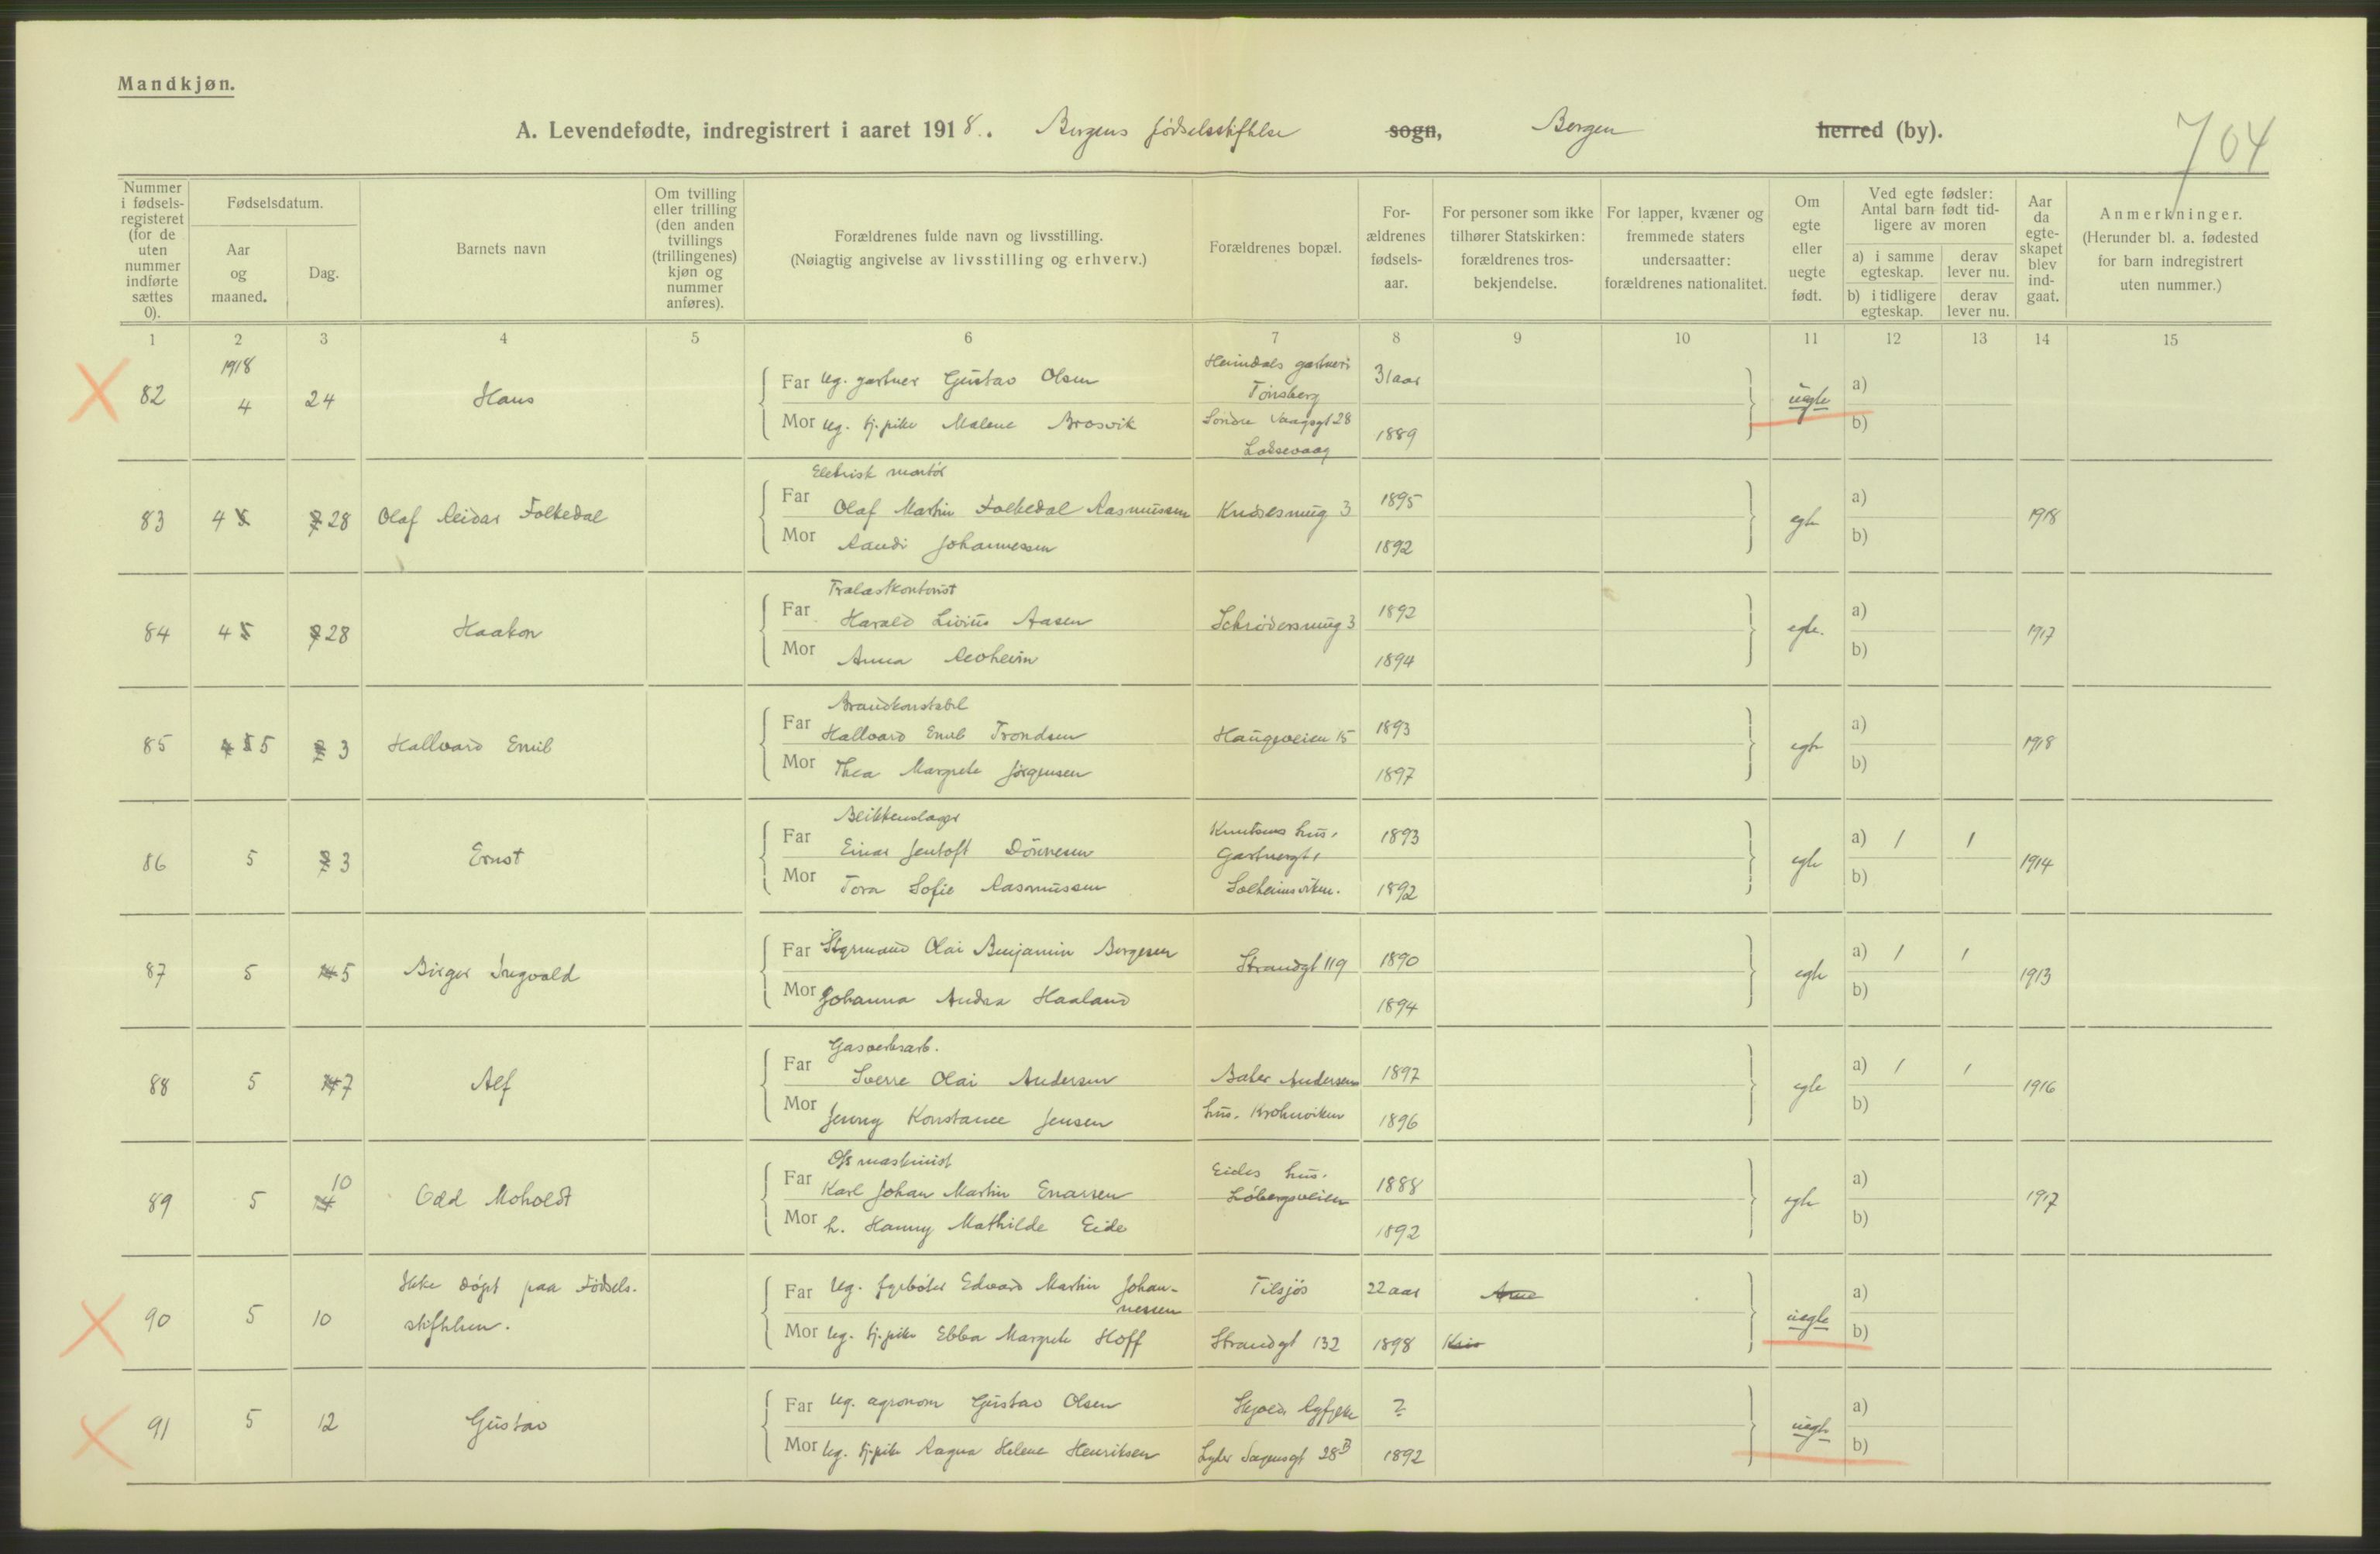 Mandkjøn.
A. Levendefødte, indregistrert i aaret 1918. Bergens fødselsstiftelse sogn, Bergen herred (by).
704
Nummer i fødsels-registeret (for de uten nummer indførte sættes 0).
Fødselsdatum.
Aar og maaned.
Dag.
Barnets navn
Om tvilling eller trilling (den anden tvillings (trillingenes) kjøn og nummer anføres).
Forældrenes fulde navn og livsstilling.
(Nøiagtig angivelse av livsstilling og erhverv.)
Forældrenes bopæl.
For-ældrenes fødsels-aar.
For personer som ikke tilhører Statskirken: forældrenes tros-bekjendelse.
For lapper, kvæner og fremmede staters undersaatter: forældrenes nationalitet.
Om egte eller uegte født.
Ved egte fødsler: Antal barn født tid-ligere av moren
a) i samme egteskap.
derav lever nu.
b) i tidligere egteskap.
derav lever nu.
Aar da egte-skapet blev ind-gaat.
Anmerkninger.
(Herunder bl. a. fødested for barn indregistrert uten nummer.)
1 2 3 4 5 6 7 8 9 10 11 12 13 14 15
1918
82 4 24 Hans
Far Ug. gartner Gustav Olsen Heimdals gartneri Tønsberg 31 aar
Mor Ug. tj.pike Malene Brosvik Søndre Vaagsgt 28 Laksevaag 1889
uegte a) b)
83 4 5 7 28 Olaf Reidar Folkedal
Elektrisk montør
Far Olaf Martin Folkedal Rasmussen Knøsesmug 3 1895
Mor Randi Johannessen 1892
egte a) b) 1918
84 4 5 7 28 Haakon
Trælastkontorist
Far Harald Livius Aasen Schrødersmug 3 1892
Mor Anna Reoheim 1894
egte. a) b) 1917
85 4 5 5 2 3 Hallvard Emil
Brandkonstabel
Far Hallvard Emil Trondsen Haugeveien 15 1893
Mor Thea Margrete Jørgensen 1897
egte a) b) 1918
86 5 2 3 Ernst
Blikkenslager
Far Einar Jentoft Dønnesen Knutsens hus, Gartnergt, 1893
Mor Tora Sofie Rasmussen Solheimsviken. 1892
egte a) 1 1 b) 1914
87 5 14 5 Birger Ingvald
Far Styrmand Olai Benjamin Borgesen Strandgt 119 1890
Mor Johanna Andrea Haaland 1894
egte a) 1 1 b) 1913
88 5 14 7 Alf
Gasverksarb.
Far Sverre Olai Andersen Baker Andersens 1897
Mor Jenny Konstance Jensen hus. Krohnviken 1896
egte a) 1 1 b) 1916
89 5 14 10 Odd Moholdt
O/s maskinist
Far Karl Johan Martin Enarsen Eides hus, Løbergsveien 1888
Mor h. Hanny Mathilde Eide 1892
egte a) b) 1917
90 5 10 Ikke døpt paa Fødsels-stiftelsen.
Far Ug. fyrbøter Edvard Martin Johan-nessen Tilsjøs 22 aar
Mor Ug. tj.pike Ebba Margrete Hoff Strandgt 132 1898
uegte a) b)
91 5 12 Gustav
Far Ug. agronom Gustav Olsen Skjold, Ryfylke ?
Mor Ug. tj.pike Ragna Helene Henriksen Lyder Sagensgt 28B 1892
uegte a) b)